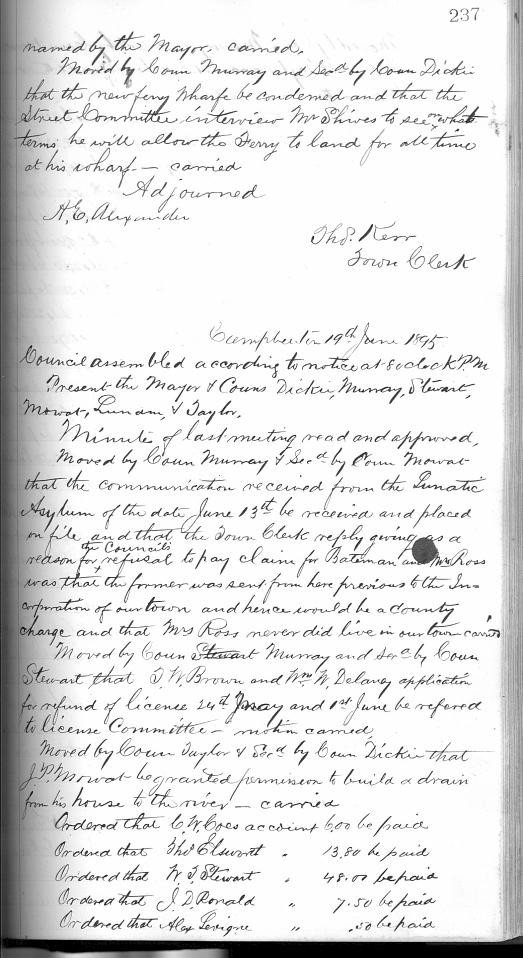 237
named by the Mayor. carried.
Moved by Coun Murray and Secd by Coun Dickie
that the new ferry Wharfe be condemned and that the
Street Committee interview Mr Shives to see on what
terms he will allow the Ferry to land for all time
at his wharf — carried
Adjourned
H.E. Alexander
Thos. Kerr
Town Clerk
Campbellton 19th June 1895
Council assembled according to notice at 8 oclock P.M
Present the Mayor & Couns Dickie, Murray, Stewart,
Mowat, Lunam, & Taylor.
Minutes of last meeting read and approved,
Moved by Coun Murray & Secd by Coun Mowat
that the communication received from the Lunatic
Asylum of the date June 13th be received and placed
on file and that the Town Clerk reply giving as a
reason for the Councils refusal to pay claim for Bateman and Mrs Ross
was that the former was sent from here previous to the In-
corporation of our town and hence would be a County
charge and that Mrs Ross never did live in our town carried
Moved by Coun Stewart Murray and Secd by Coun
Stewart that T.W. Brown and Wm W. Delaney application
for refund of license 24th May and 1st June be refered
to license Committee — motion carried.
Moved by Coun Taylor & Secd by Coun Dickie that
J.P. Mowat be granted permission to build a drain
from his house to the river — carried
Ordered that C.W. Coes account 6.00 be paid
Ordered that Thos Elsworth " 13.80 be paid
Ordered that W.T. Stewart " 48.00 be paid
Ordered that J.D. Ronald " 7.50 be paid
Ordered that Alex Levigne " .50 be paid